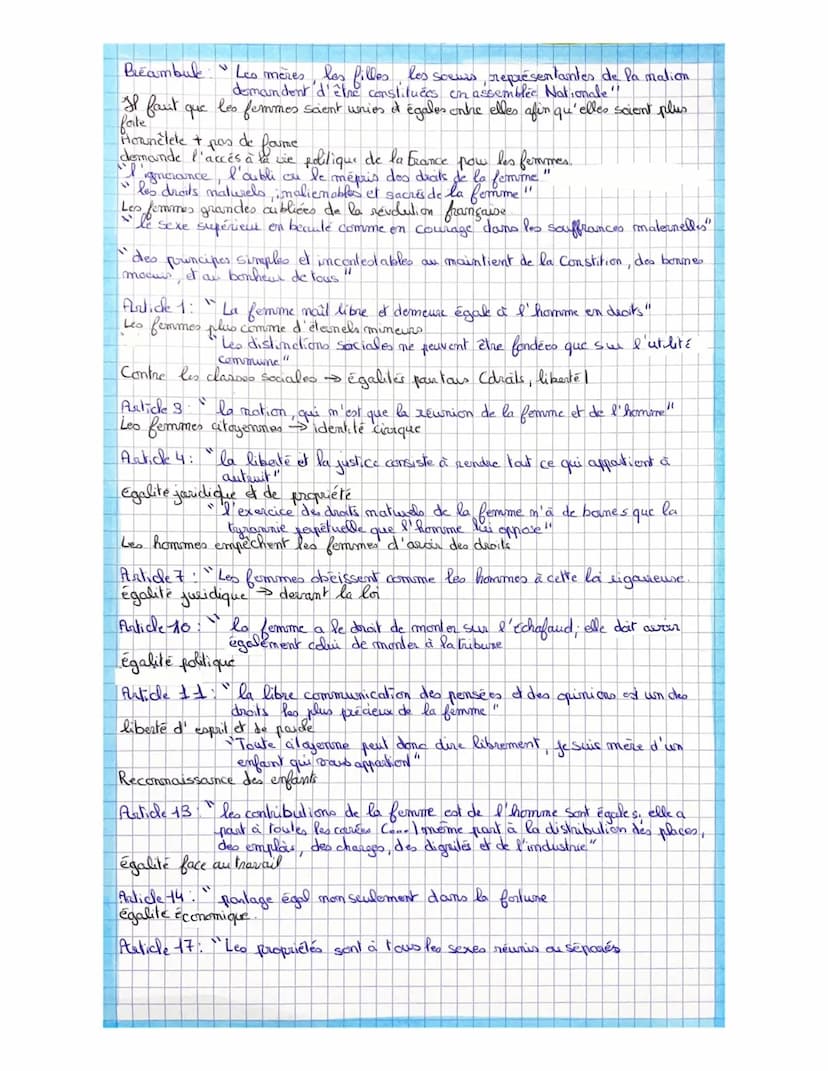 Préambule : " Les mères, les filles, les sœurs, représentantes de la nation
demandent d'être constituées en assemblée Nationale"
Il faut que les femmes soient unies et égales entre elles afin qu'elles soient plus
forte
Honnêteté + pas de
demande l'accès à la vie politique de la France pour les femmes.
"l'ignorance, l'oubli ou le mépris des droits de la femme"
"les droits naturels, inaliénables et sacrés de la femme"
Les femmes grandes oubliées de la révolution française
"le sexe supérieur en beauté comme en courage dans les souffrances maternelles"
"des principes simples et incontestables au maintient de la Constition, des bonnes
moeurs, et au bonheur de tous"
Article 1 : " La femme naît libre et demeure égale à l'homme en droits"
Les femmes plus comme d'éternels mineurs
"Les distinctions sociales ne peuvent être fondées que sur l'utilité
commune"
Contre les classes sociales → égalités pour tous (droits, liberté)
Article 3 : " la nation, qui n'est que la réunion de la femme et de l'homme"
Les femmes citoyennes → identité civique
Article 4 : " la liberté et la justice consiste à rendre tout ce qui appartient à
autruit"
Egalité juridique et de propriété
"l'exercice des droits naturels de la femme n'a de bornes que la
tyrannie perpétuelle que l'homme lui oppose"
Les hommes empêchent les femmes d'avoir des droits
Article 7 : "Les femmes obéissent comme les hommes à cette loi rigoureuse.
égalité juridique → devant la loi
Article 10 : " la femme a le droit de monter sur l'échafaud ; elle doit avoir
également celui de monter à la tribune
égalité politique
Article 11 : " la libre communication des pensées et des opinions est un des
droits les plus précieux de la femme"
liberté d'esprit et de parole
"Toute citoyenne peut donc dire librement, je suis mère d'un
enfant qui vous appartient"
Reconnaissance des enfants
Article 13 : " les contributions de la femme est de l'homme sont égales ; elle a
part à toutes les corvées (...) même part à la distribution des places,
des emplois, des charges, des dignités et de l'industrie"
égalité face au travail
Article 14 : " partage égal non seulement dans la fortune
égalité économique.
Article 17 : "Les propriétés sont à tous les sexes réunis ou séparés